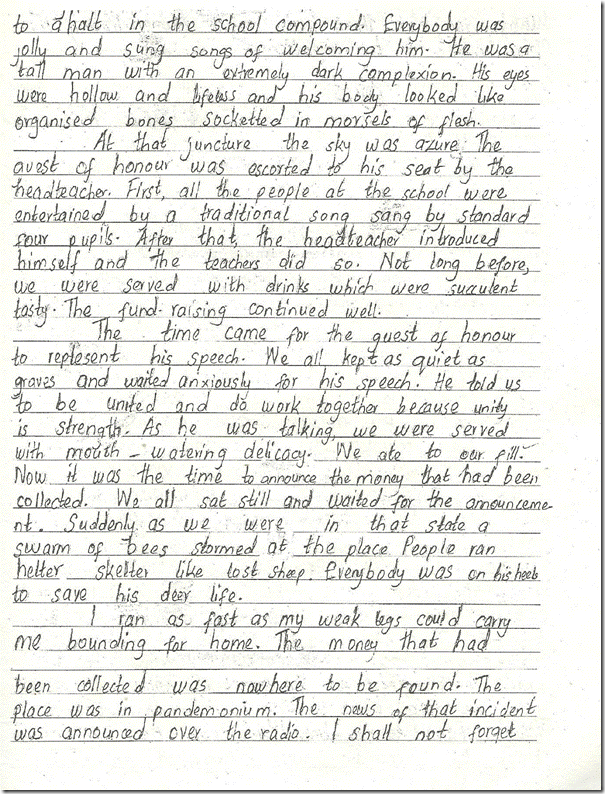 to a halt in the school compound. Everybody was
jolly and sung songs of welcoming him. He was a
tall man with an extremely dark complexion. His eyes
were hollow and lifeless and his body looked like
organised bones socketted in morsels of flesh.
At that juncture the sky was azure. The
guest of honour was escorted to his seat by the
headteacher. First, all the people at the school were
entertained by a traditional song sang by standard
four pupils. After that, the headteacher introduced
himself and the teachers did so. Not long before,
we were served with drinks which were succulent
tasty. The fund-raising continued well.
The time came for the guest of honour
to represent his speech. We all kept as quiet as
graves and waited anxiously for his speech. He told us
to be united and do work together because unity
is strength. As he was talking, we were served
with mouth-watering delicacy. We ate to our fill.
Now it was the time to announce the money that had been
collected. We all sat still and waited for the announceme-
nt. Suddenly as we were in that state a
swarm of bees stormed at the place. People ran
helter skelter like lost sheep. Everybody was on his heels
to save his deer life.
I ran as fast as my weak legs could carry
me bounding for home. The money that had
been collected was nowhere to be found. The
place was in pandemonium. The news of that incident
was announced over the radio. I shall not forget